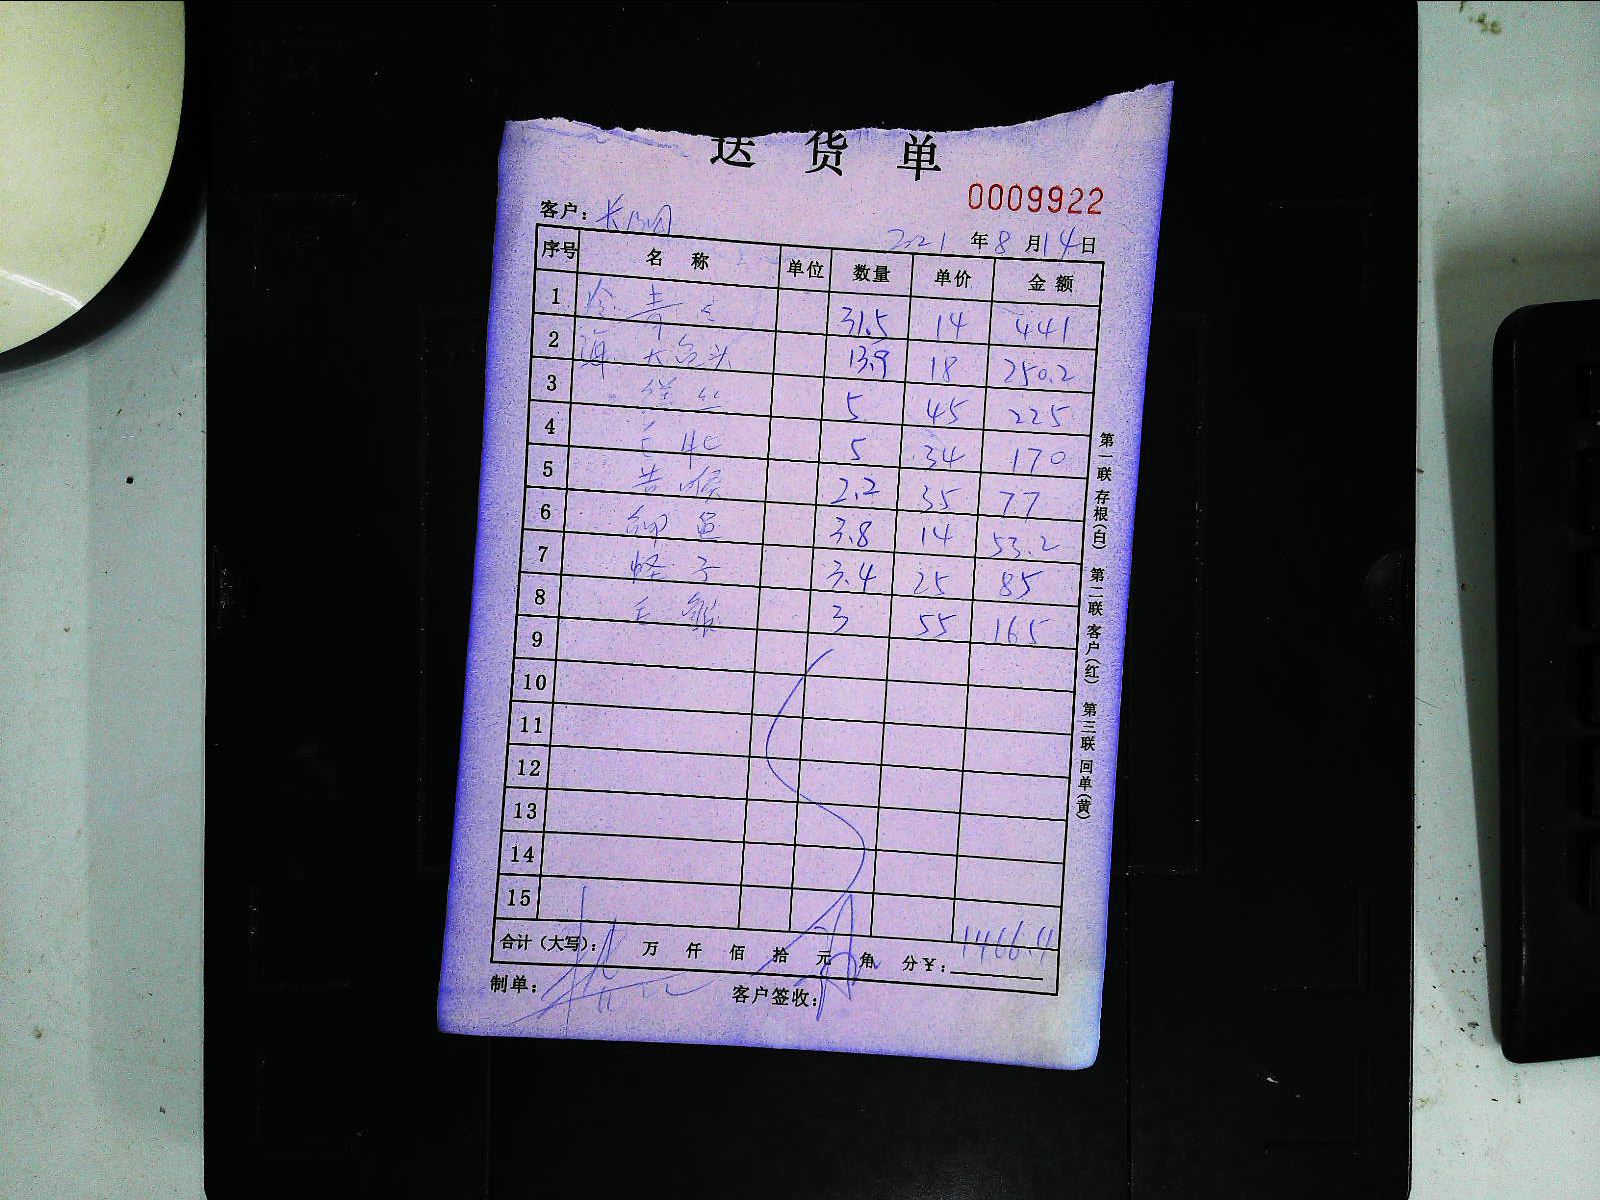 送 货 单
0009922
客户：
2021 年 8 月 14 日
序号 名 称 单位 数量 单价 金额
1 31.5 14 441
2 海大 头 13.9 18 250.2
3 5 45 225
4 毛肚 5 34 170
5 黄喉 2.2 35 77
6 鱼 3.8 14 53.2
7 蛏子 3.4 25 85
8 3 55 165
9
10
11
12
13
14
15
合计（大写）： 万 仟 佰 拾 元 角 分 ¥： 1466.4
制单： 客户签收：
第一联 存根（白） 第二联 客户（红） 第三联 回单（黄）